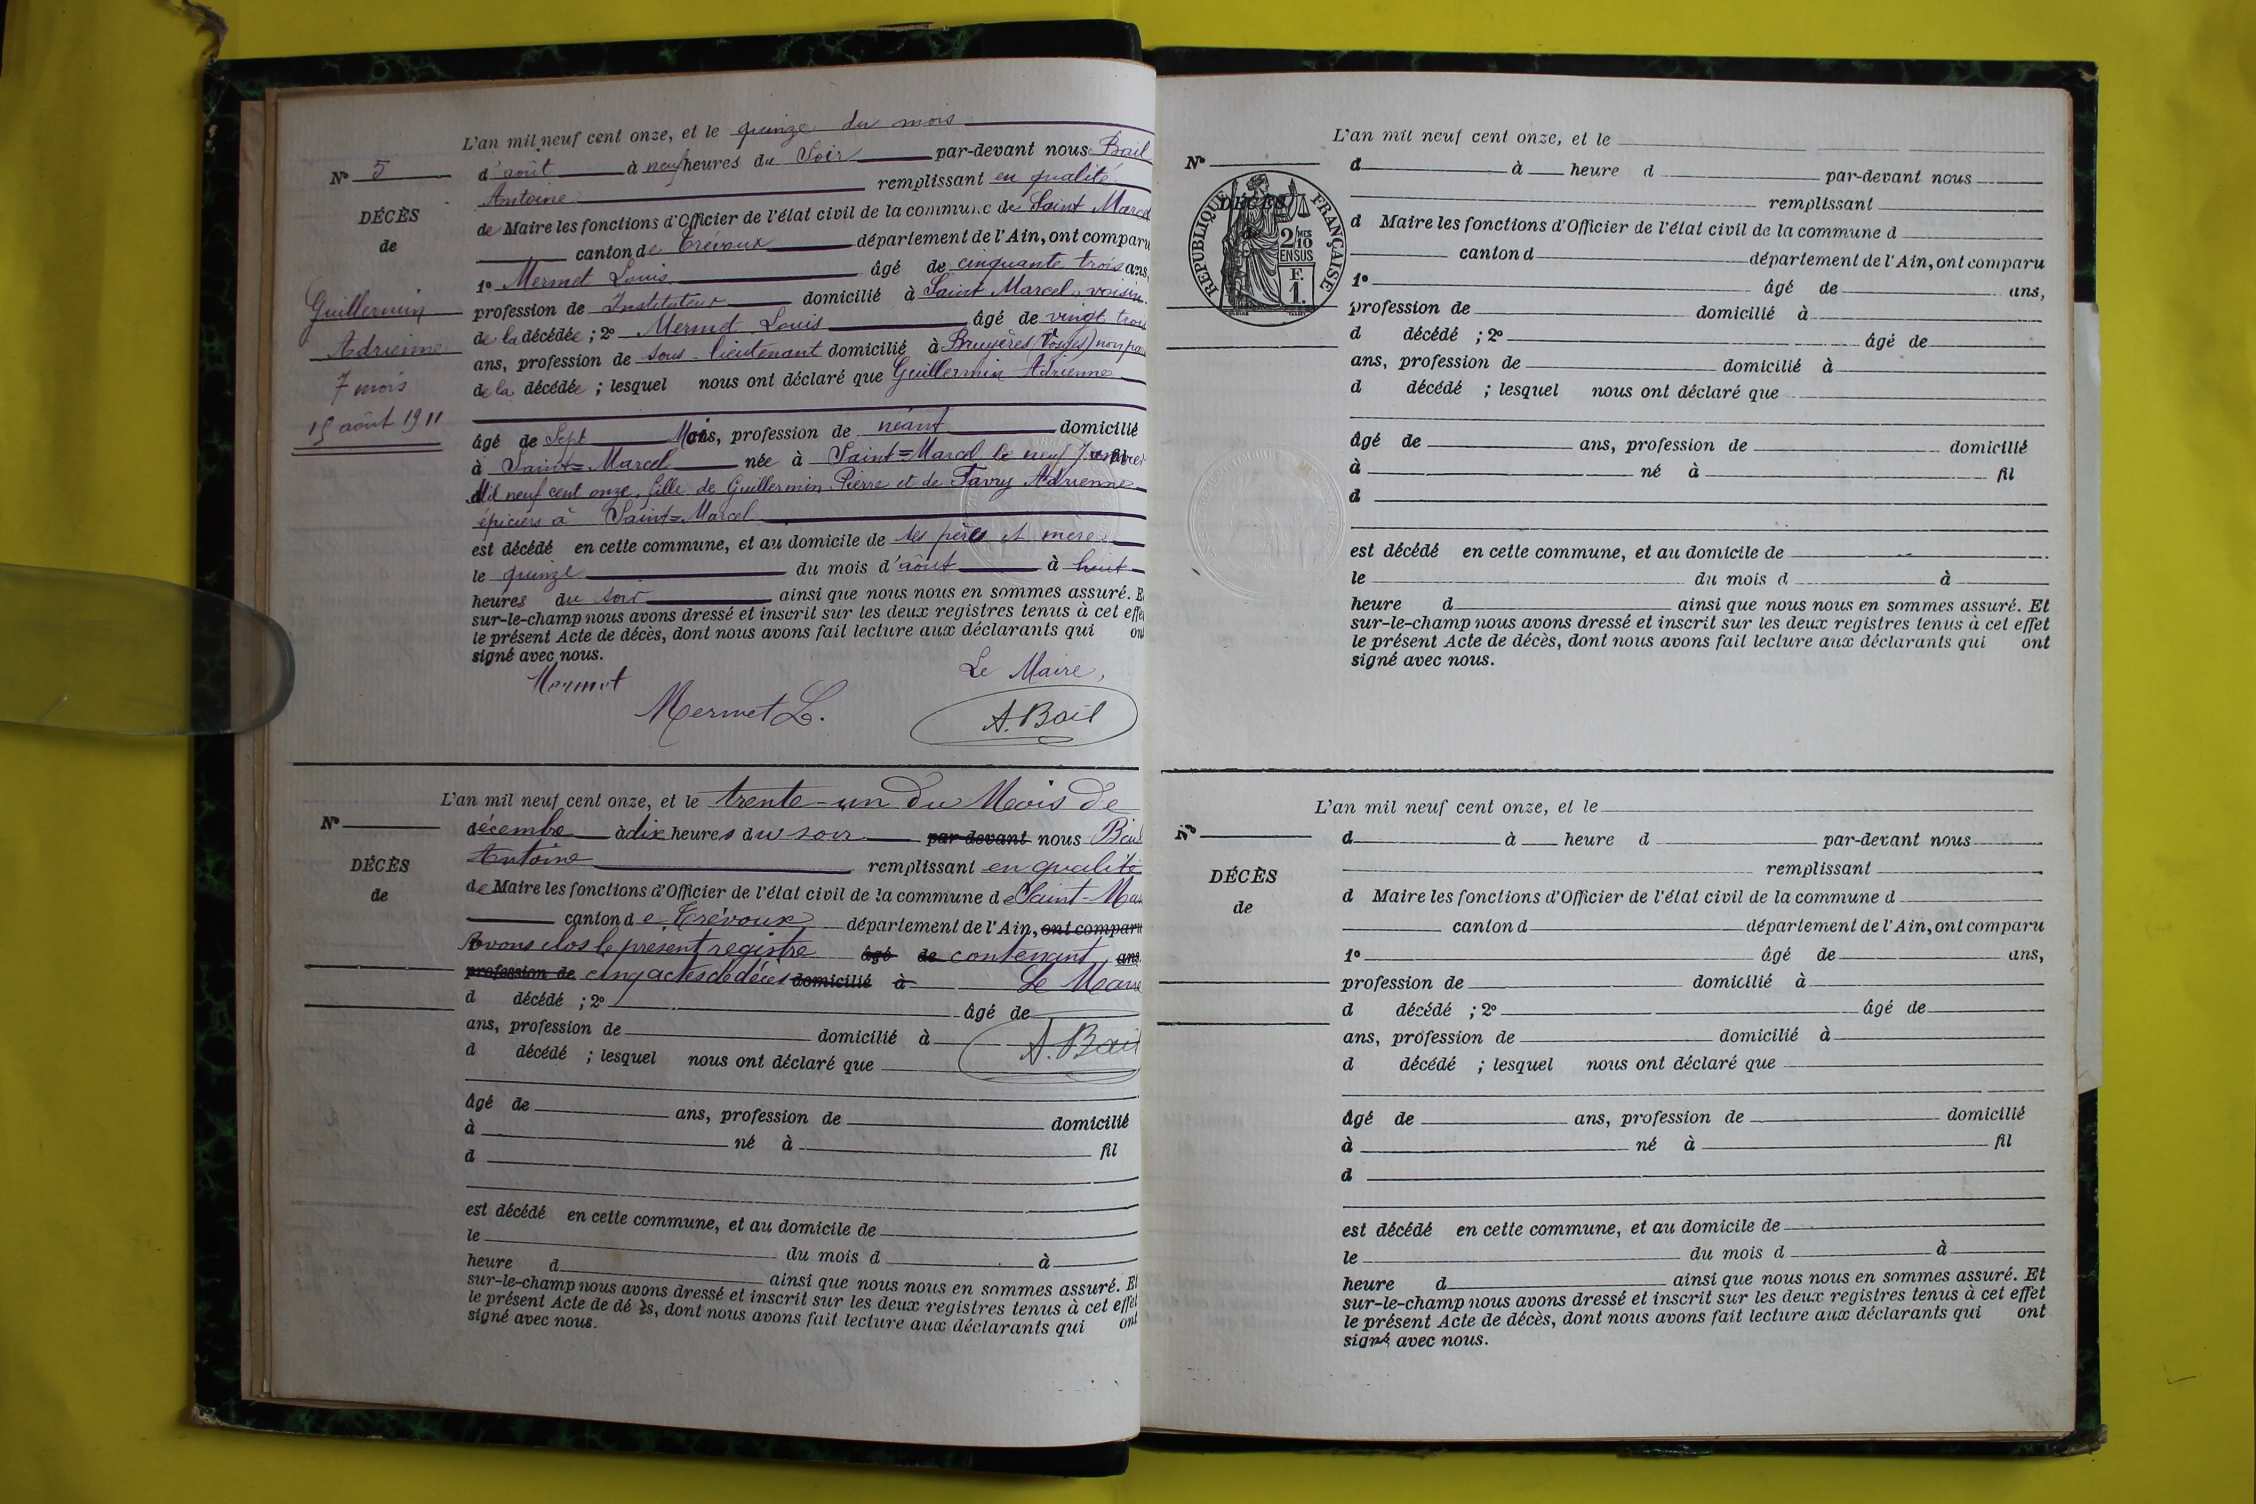 L'an mil neuf cent onze, et le quinze du mois
N° 5
d'août à neuf heures du Soir par-devant nous Bail
Antoine remplissant en qualité
DÉCÈS
de Maire les fonctions d'Officier de l'état civil de la commune de Saint Marcel
de
canton de Trévoux département de l'Ain, ont comparu
1° Mermet Louis âgé de cinquante trois ans,
Guillermin
profession de Instituteur domicilié à Saint Marcel, voisin
de la décédée ; 2° Mermet Louis âgé de vingt trois
Adrienne
ans, profession de sous-lieutenant domicilié à Bruyères (Vosges) non
7 mois
de la décédée ; lesquel nous ont déclaré que Guillermin Adrienne
15 août 1911
âgé de Sept Mois, profession de néant domicilié
à Saint=Marcel née à Saint=Marcel le neuf
Mil neuf cent onze, fille de Guillermin Pierre et de Favry Adrienne
épiciers à Saint=Marcel
est décédé en cette commune, et au domicile de ses père et mère
le quinze du mois d'août à huit
heures du soir ainsi que nous nous en sommes assuré. Et
sur-le-champ nous avons dressé et inscrit sur les deux registres tenus à cet effet
le présent Acte de décès, dont nous avons fait lecture aux déclarants qui ont
signé avec nous.
Mermet
Le Maire,
Mermet L.
A. Bail
L'an mil neuf cent onze, et le trente-un du Mois de
N°
décembre à dix heures du soir par-devant nous Bail
Antoine remplissant en qualité
DÉCÈS
de Maire les fonctions d'Officier de l'état civil de la commune de Saint-Mar
de
canton de Trévoux département de l'Ain, ont comparu
Avons clos le présent registre âgé de contenant ans
profession de cinq actes de décès domicilié à Le Maire
d décédé ; 2° âgé de
ans, profession de domicilié à
A. Bail
d décédé ; lesquel nous ont déclaré que
âgé de ans, profession de domicilié
à né à fil
d
est décédé en cette commune, et au domicile de
le du mois d à
heure d ainsi que nous nous en sommes assuré. Et
sur-le-champ nous avons dressé et inscrit sur les deux registres tenus à cet effet
le présent Acte de décès, dont nous avons fait lecture aux déclarants qui ont
signé avec nous.
L'an mil neuf cent onze, et le
N°
d à heure d par-devant nous
remplissant
DÉCÈS
RÉPUBLIQUE FRANÇAISE
2/10 MES
EN SUS
F.
1.
d Maire les fonctions d'Officier de l'état civil de la commune d
canton d département de l'Ain, ont comparu
1° âgé de ans,
profession de domicilié à
d décédé ; 2° âgé de
ans, profession de domicilié à
d décédé ; lesquel nous ont déclaré que
âgé de ans, profession de domicilié
à né à fil
d
est décédé en cette commune, et au domicile de
le du mois d à
heure d ainsi que nous nous en sommes assuré. Et
sur-le-champ nous avons dressé et inscrit sur les deux registres tenus à cet effet
le présent Acte de décès, dont nous avons fait lecture aux déclarants qui ont
signé avec nous.
L'an mil neuf cent onze, et le
N°
d à heure d par-devant nous
remplissant
DÉCÈS
d Maire les fonctions d'Officier de l'état civil de la commune d
de
canton d département de l'Ain, ont comparu
1° âgé de ans,
profession de domicilié à
d décédé ; 2° âgé de
ans, profession de domicilié à
d décédé ; lesquel nous ont déclaré que
âgé de ans, profession de domicilié
à né à fil
d
est décédé en cette commune, et au domicile de
le du mois d à
heure d ainsi que nous nous en sommes assuré. Et
sur-le-champ nous avons dressé et inscrit sur les deux registres tenus à cet effet
le présent Acte de décès, dont nous avons fait lecture aux déclarants qui ont
signé avec nous.